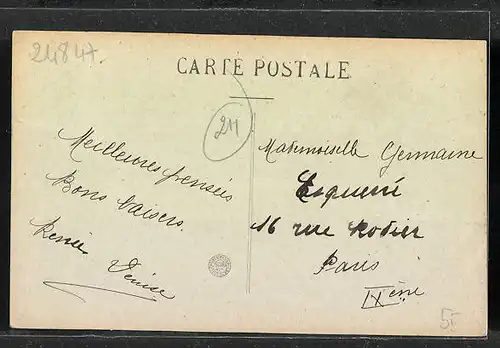 24847.
CARTE POSTALE
24
Meilleures pensées
Bons baisers.
Renée
Mademoiselle Germaine
Esquerré
16 rue Rodier
Paris
IXème
5-